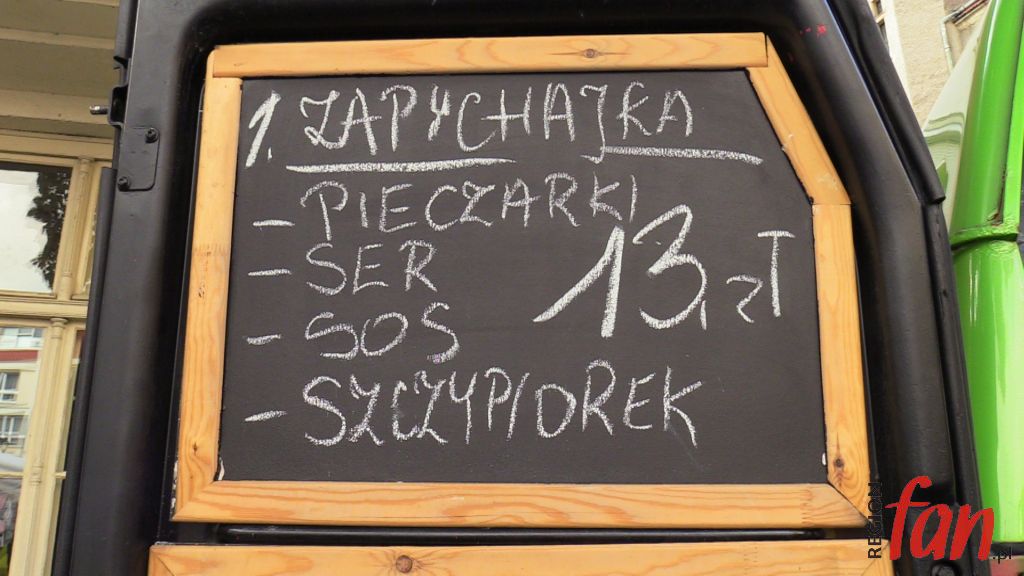 1. ZAPYCHAJKA
- PIECZARKI
- SER
13, zł
- SOS
- SZCZYPIOREK
REGION
fan
.pl